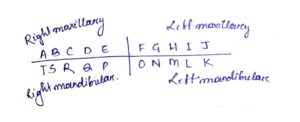 Right maxillary Left maxillary
A B C D E F G H I J
T S R Q P O N M L K
Right mandibular. Left mandibular